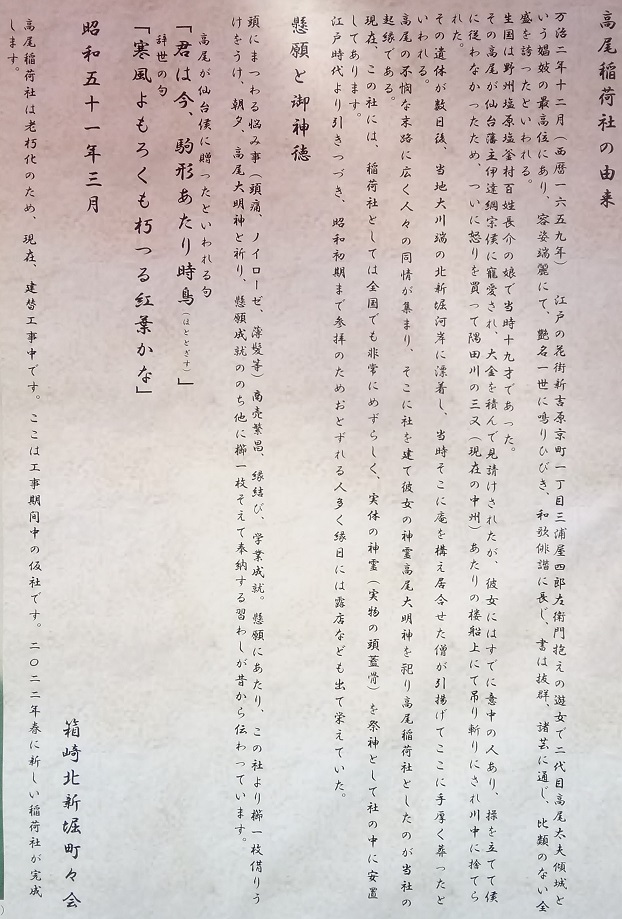 高尾稲荷社の由来
万治二年十二月(西暦一六五九年) 江戸の花街新吉原京町一丁目三浦屋四郎左衛門抱えの遊女で二代目高尾太夫傾城と
いう娼妓の最高位にあり、容姿端麗にて、艶名一世に鳴りひびき、和歌俳諧に長じ、書は抜群、諸芸に通じ、比類のない全
盛を誇ったといわれる。
生国は野州塩原塩釜村百姓長介の娘で当時十九才であった。
その高尾が仙台藩主伊達綱宗侯に寵愛され、大金を積んで見請けされたが、彼女にはすでに意中の人あり、操を立てて侯
に従わなかったため、ついに怒りを買って隅田川の三又(現在の中州)あたりの楼船上にて吊り斬りにされ川中に捨てら
れた。
その遺体が数日後、当地大川端の北新堀河岸に漂着し、当時そこに庵を構え居合せた僧が引揚げてここに手厚く葬ったと
いわれる。
高尾の不憫な末路に広く人々の同情が集まり、そこに社を建て彼女の神霊高尾大明神を祀り高尾稲荷社としたのが当社の
起縁である。
現在、この社には、稲荷社としては全国でも非常にめずらしく、実体の神霊(実物の頭蓋骨)を祭神として社の中に安置
してあります。
江戸時代より引きつづき、昭和初期まで参拝のためおとずれる人多く縁日には露店なども出て栄えていた。
懸願と御神徳
頭にまつわる悩み事(頭痛、ノイローゼ、薄髪等)商売繁昌、縁結び、学業成就。懸願にあたり、この社より櫛一枚借りう
けをうけ、朝夕、高尾大明神と祈り、懸願成就ののち他に櫛一枚そえて奉納する習わしが昔から伝わっています。
高尾が仙台侯に贈ったといわれる句
「君は今、駒形あたり時鳥(ほととぎす)」
辞世の句
「寒風よもろくも朽つる紅葉かな」
昭和五十一年三月
箱崎北新堀町々会
高尾稲荷社は老朽化のため、現在、建替工事中です。ここは工事期間中の仮社です。二〇二二年春に新しい稲荷社が完成
します。